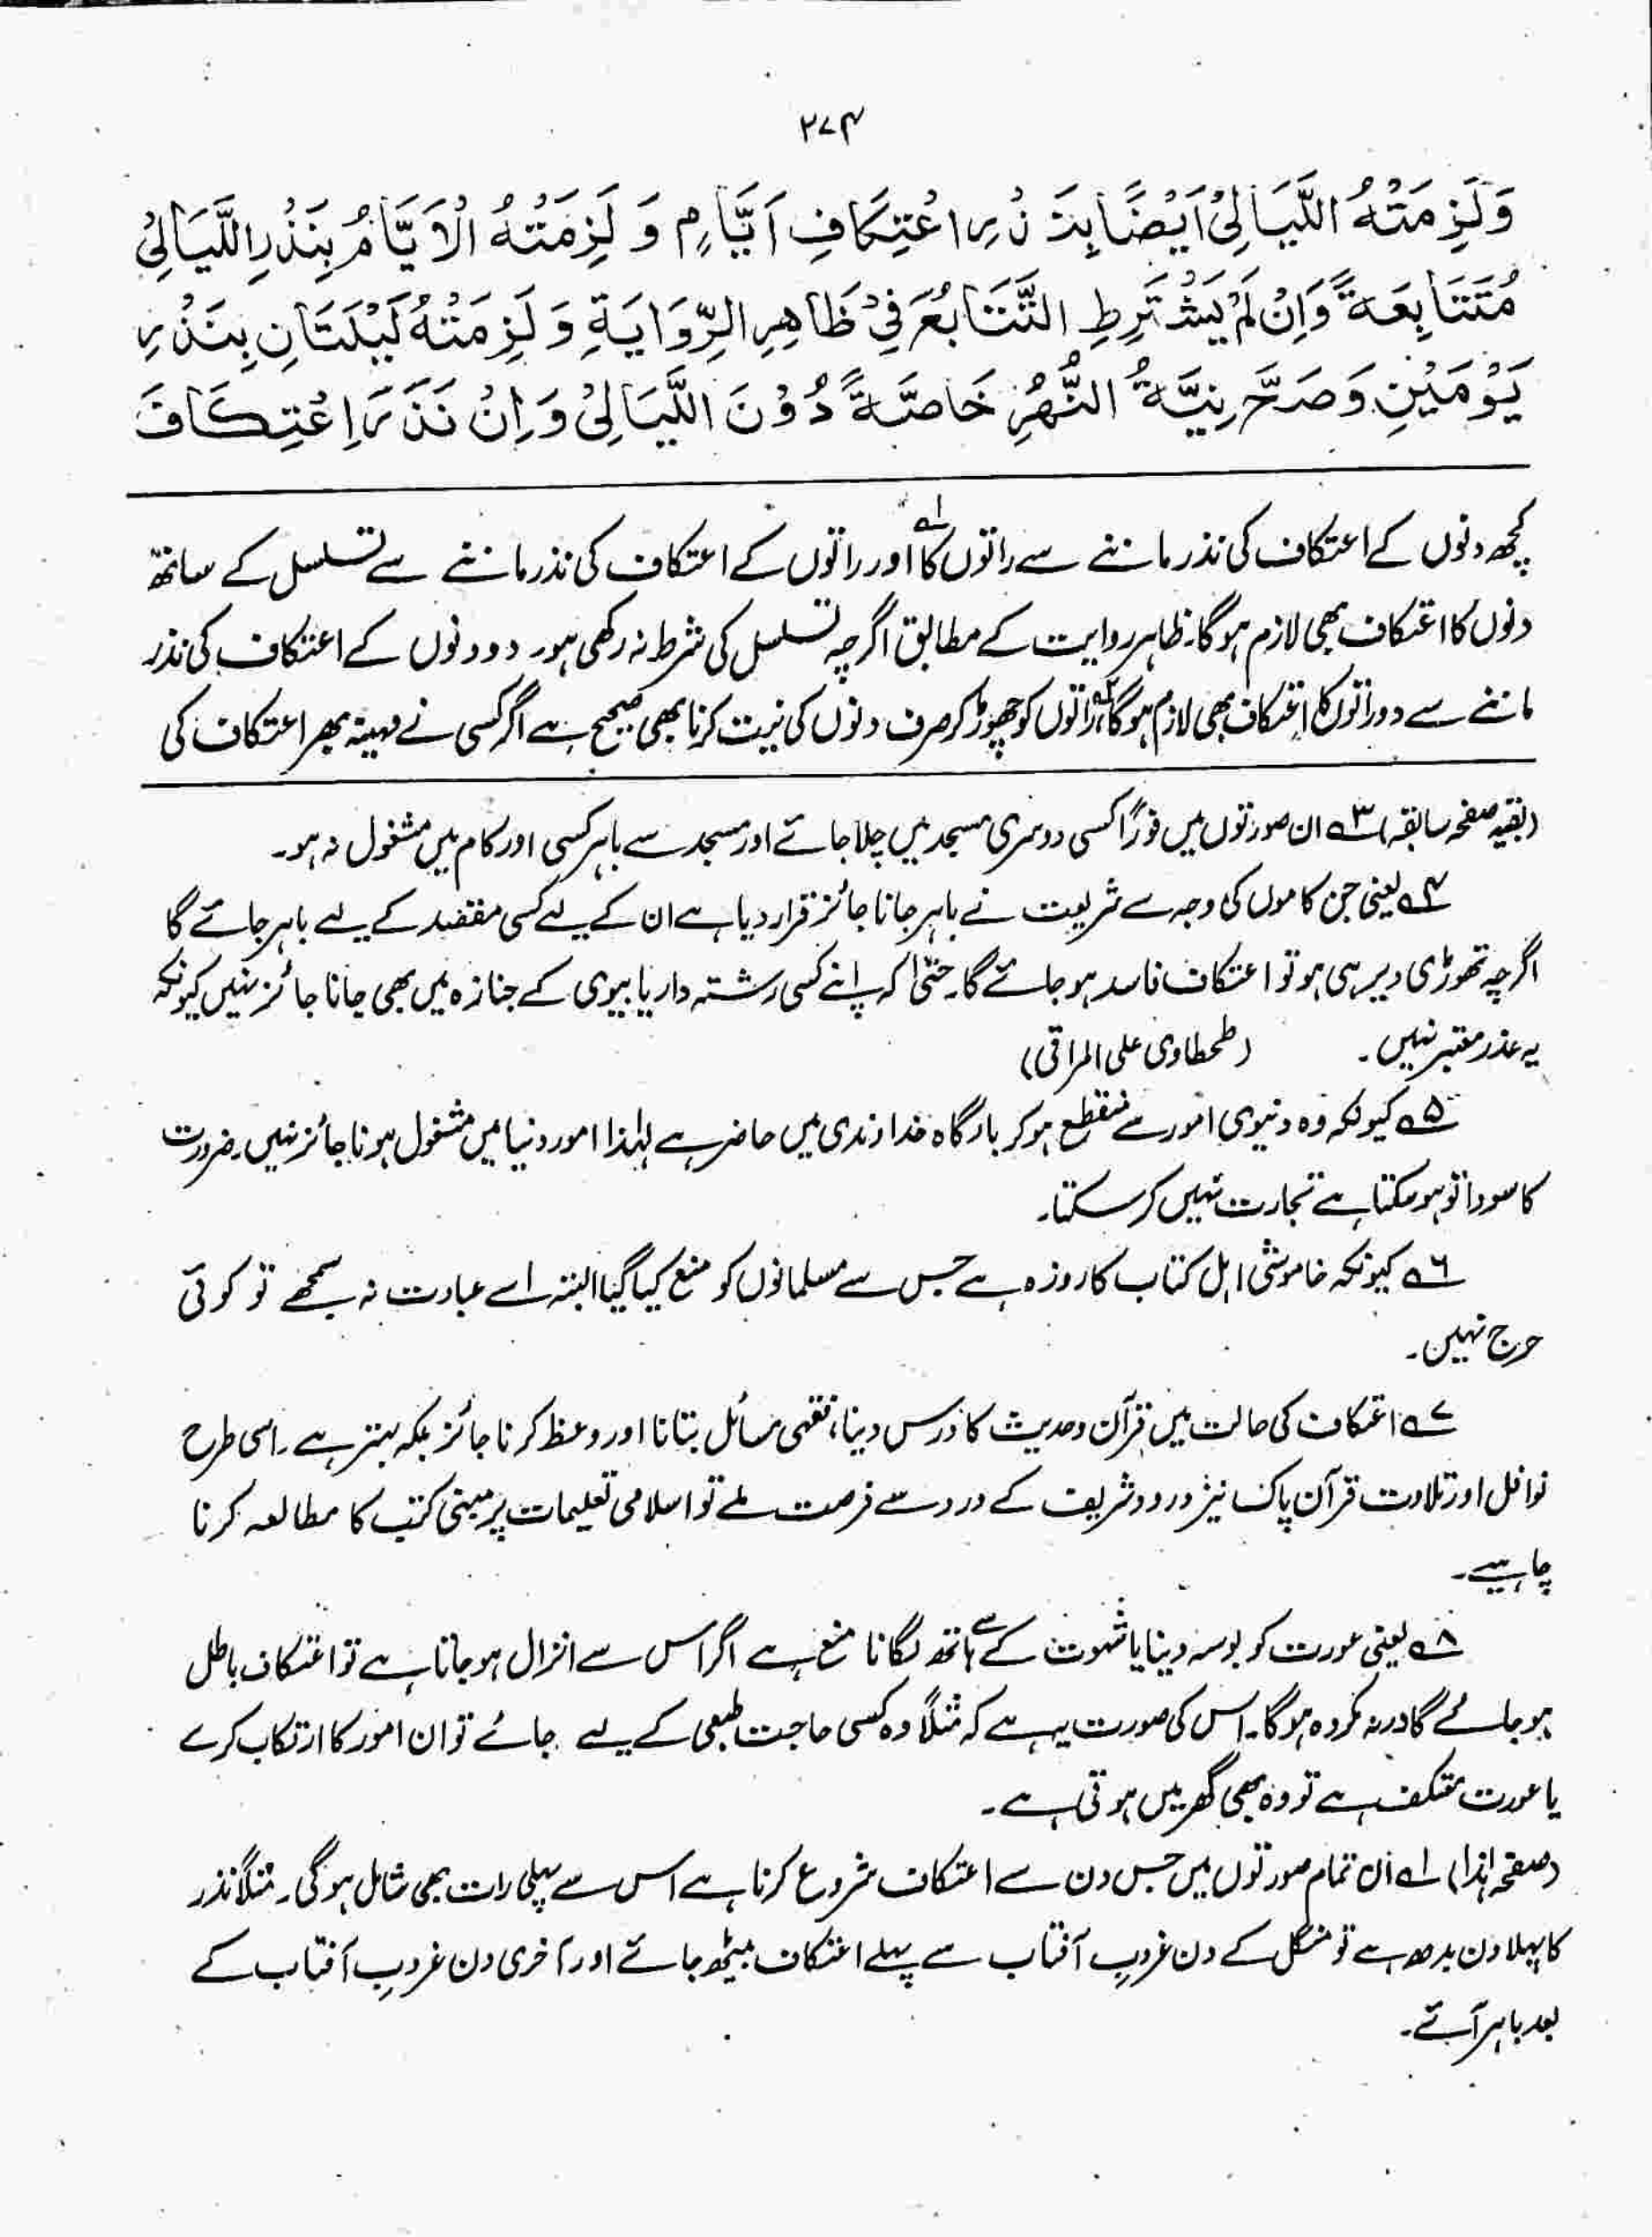 ۲۷۴
وَلَزِمَتْهُ اللَّيَالِيْ اَيْضًا بِنَذْرِ اعْتِكَافِ اَيَّامٍ وَ لَزِمَتْهُ الْاَيَّامُ بِنَذْرِ اللَّيَالِيْ
مُتَتَابِعَةً وَاِنْ لَمْ يَشْتَرِطِ التَّتَابُعَ فِيْ ظَاهِرِ الرِّوَايَةِ وَ لَزِمَتْهُ لَيْلَتَانِ بِنَذْرِ
يَوْمَيْنِ وَصَحَّ نِيَّةُ النُّهُرِ خَاصَّةً دُوْنَ اللَّيَالِيْ وَ اِنْ نَذَرَ اِعْتِكَافَ
کچھ دنوں کے اعتکاف کی نذر ماننے سے راتوں کا ۱ اور راتوں کے اعتکاف کی نذر ماننے سے تسلسل کے ساتھ
دنوں کا اعتکاف بھی لازم ہوگا۔ ظاہر روایت کے مطابق اگرچہ تسلسل کی شرط نہ رکھی ہو۔ دو دنوں کے اعتکاف کی نذر
ماننے سے دو راتوں کا اعتکاف بھی لازم ہوگا ۲؂ راتوں کو چھوڑ کر صرف دنوں کی نیت کرنا بھی صحیح ہے اگر کسی نے مہینہ بھر اعتکاف کی
(بقیہ صفحہ سابقہ) ۳؂ ان صورتوں میں فوراً کسی دوسری مسجد میں چلا جائے اور مسجد سے باہر کسی اور کام میں مشغول نہ ہو۔
۴؂ یعنی جن کاموں کی وجہ سے شریعت نے باہر جانا جائز قرار دیا ہے ان کے لیے کسی مقصد کے لیے باہر جائے گا
اگرچہ تھوڑی دیر ہی ہو تو اعتکاف فاسد ہو جائے گا۔ حتیٰ کہ اپنے کسی رشتہ دار یا بیوی کے جنازہ میں بھی جانا جائز نہیں کیونکہ
یہ عذر معتبر نہیں۔ (طحطاوی علی المراقی)
۵؂ کیونکہ وہ دنیوی امور سے منقطع ہو کر بارگاہ خداوندی میں حاضر ہے لہٰذا امور دنیا میں مشغول ہونا جائز نہیں۔ ضرورت
کا سودا تو ہو سکتا ہے تجارت نہیں کر سکتا۔
۶؂ کیونکہ خاموشی اہل کتاب کا روزہ ہے جس سے مسلمانوں کو منع کیا گیا البتہ اسے عبادت نہ سمجھے تو کوئی
حرج نہیں۔
۷؂ اعتکاف کی حالت میں قرآن و حدیث کا درس دینا، فقہی مسائل بتانا اور وعظ کرنا جائز بلکہ بہتر ہے۔ اسی طرح
نوافل اور تلاوت قرآن پاک نیز درود شریف کے ورد سے فرصت ملے تو اسلامی تعلیمات پر مبنی کتب کا مطالعہ کرنا
چاہیے۔
۸؂ یعنی عورت کو بوسہ دینا یا شہوت کے سے ہاتھ لگانا منع ہے اگر اس سے انزال ہو جاتا ہے تو اعتکاف باطل
ہو جائے گا ورنہ مکروہ ہوگا۔ اس کی صورت یہ ہے کہ مثلاً وہ کسی حاجت طبعی کے لیے جائے تو ان امور کا ارتکاب کرے
یا عورت معتکف ہے تو وہ بھی گھر میں ہوتی ہے۔
(صفحہ ہذا) ۱؂ ان تمام صورتوں میں جس دن سے اعتکاف شروع کرنا ہے اس سے پہلی رات بھی شامل ہوگی۔ مثلاً نذر
کا پہلا دن بدھ ہے تو منگل کے دن غروبِ آفتاب سے پہلے اعتکاف بیٹھ جائے اور آخری دن غروبِ آفتاب کے
بعد باہر آئے۔